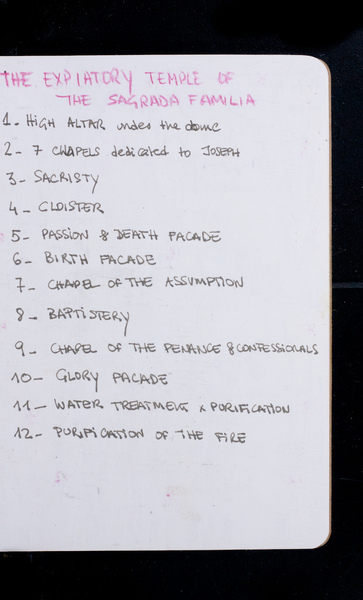 THE EXPIATORY TEMPLE OF
THE SAGRADA FAMILIA
1- HIGH ALTAR under the dome
2- 7 CHAPELS dedicated to JOSEPH
3- SACRISTY
4- CLOISTER
5- PASSION & DEATH FACADE
6- BIRTH FACADE
7- CHAPEL OF THE ASSUMPTION
8- BAPTISTERY
9- CHAPEL OF THE PENANCE & CONFESSIONALS
10- GLORY FACADE
11- WATER TREATMENT & PURIFICATION
12- PURIFICATION OF THE FIRE